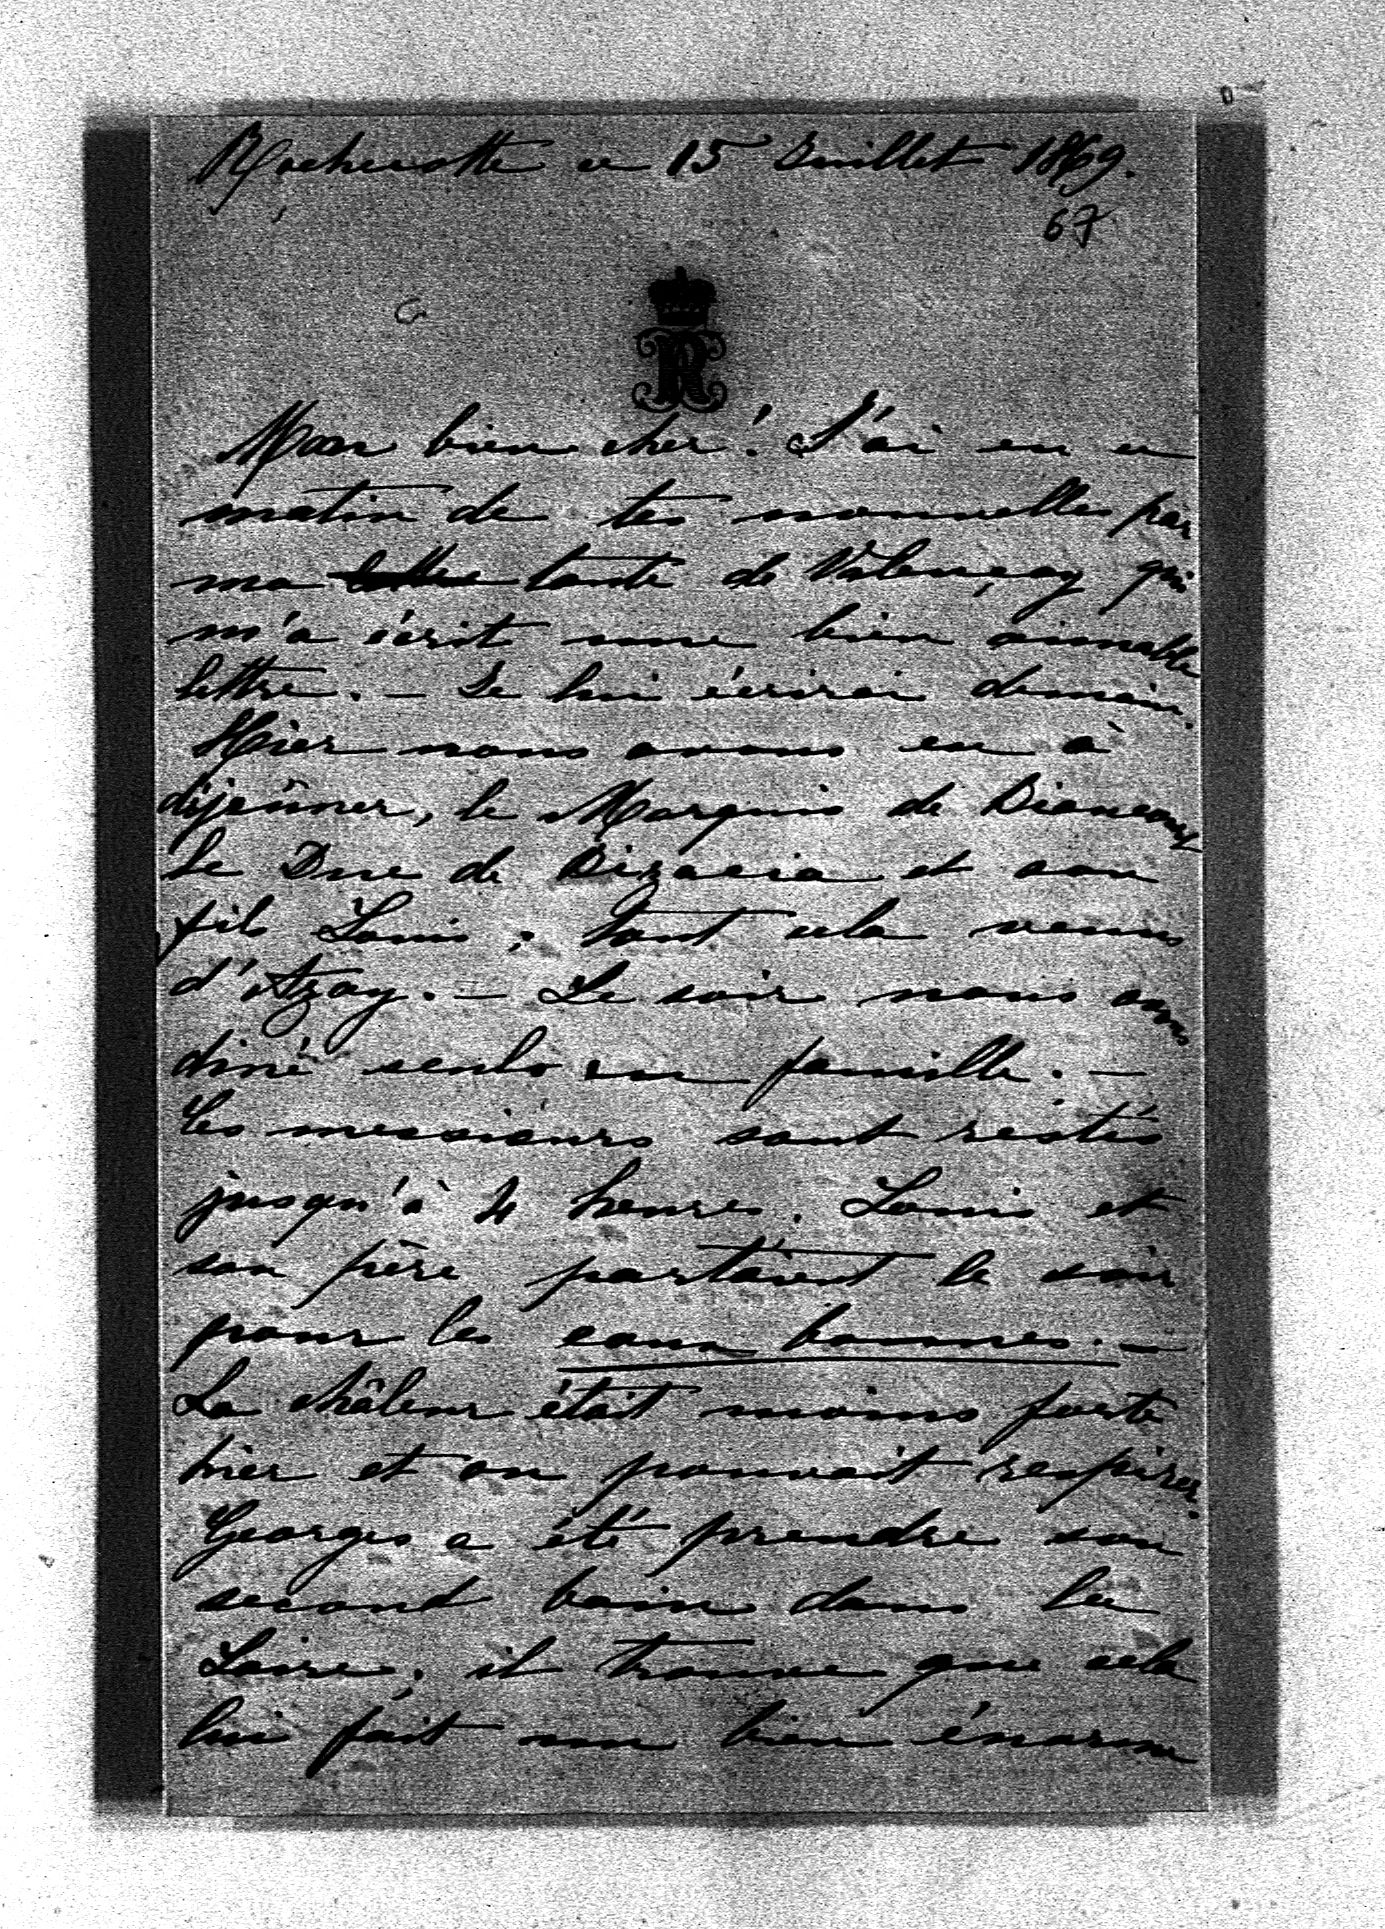 Rochecotte ce 15 Juillet 1869.
67
R
Mon bien cher! J'ai eu ce
matin de tes nouvelles par
ma tante de Valençay qui
m'a écrit une bien aimable
lettre. — Je lui écrirai demain.
Hier nous avons eu à
déjeûner, le Marquis de Biencourt
le Duc de Bizaccia et son
fils Louis; tout cela venus
d'Azay. — Le soir nous avons
diné seuls en famille. —
Les messieurs sont restés
jusqu'à 4 heures. Louis et
son père partaient le soir
pour les eaux bonnes. —
La châleur était moins forte
hier et on pouvait respirer.
Georges a été prendre son
second bain dans la
Loire. il trouve que cela
lui fait un bien énorme